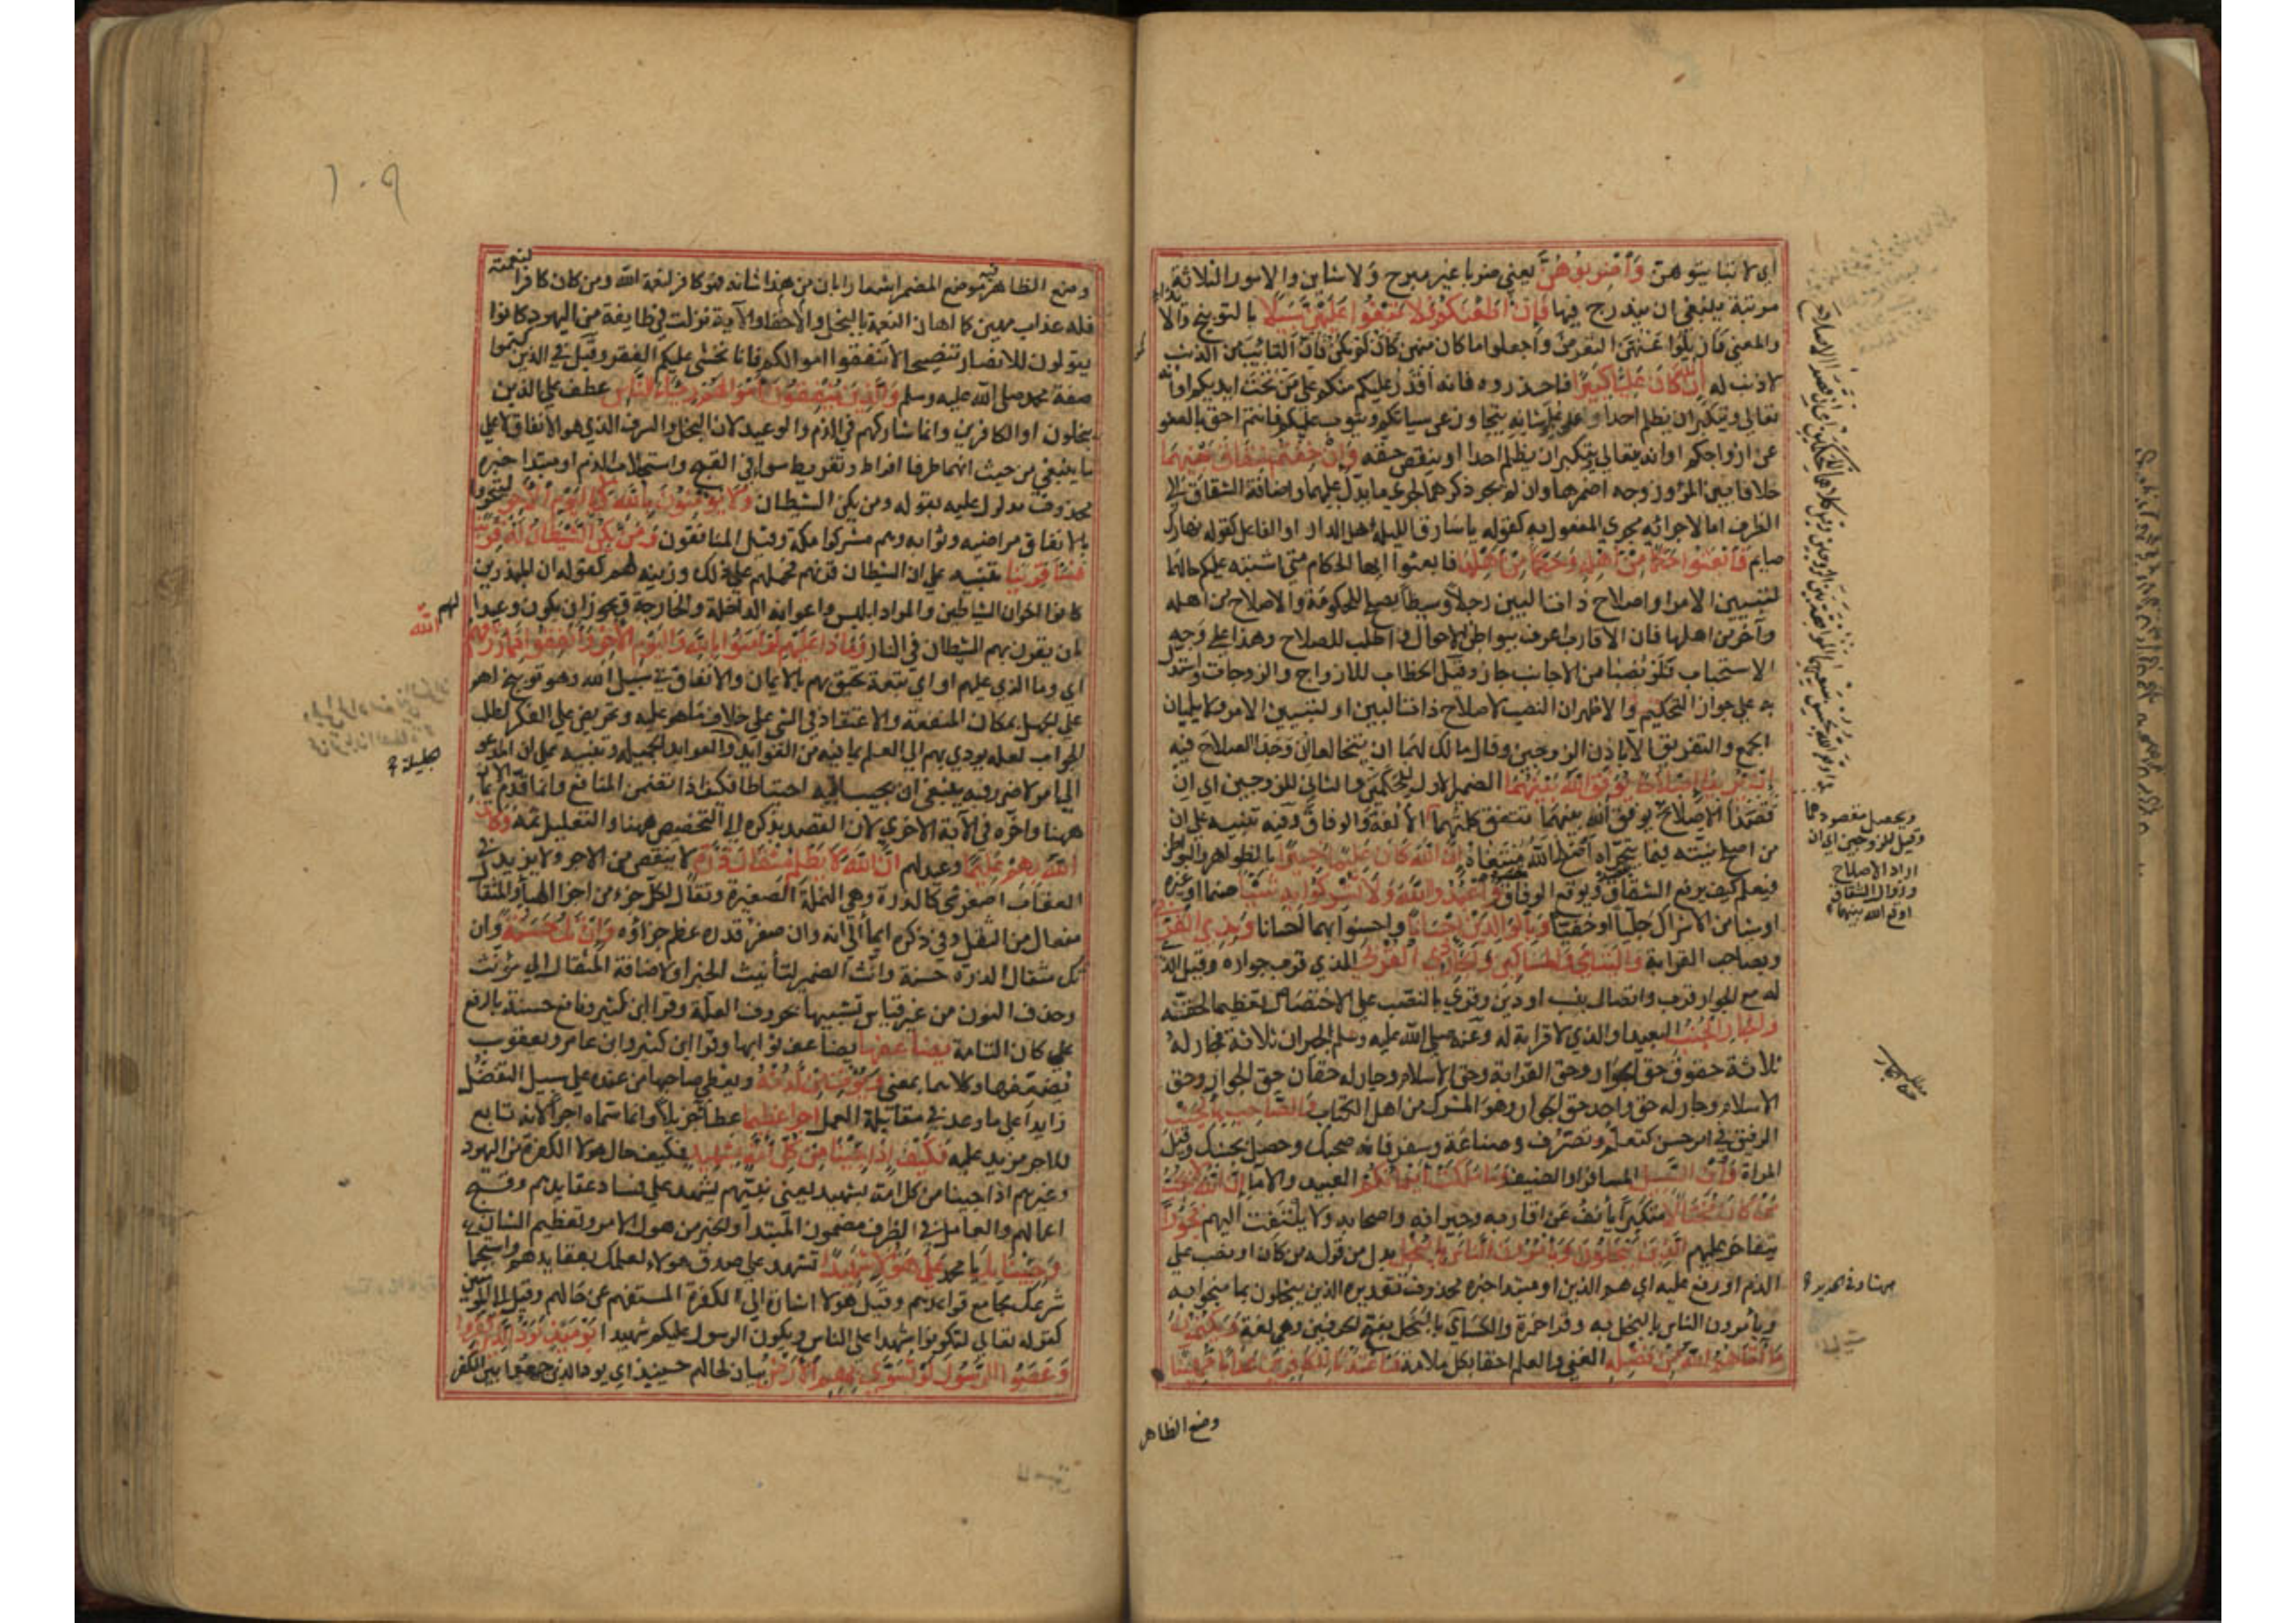 اي لا تبايتوهن وَاضْرِبُوهُنَّ يعني ضربا غير مبرح ولا شاين والامور الثلاثة
مرتبة ينبغي ان يتدرج فيها فَإِنْ أَطَعْنَكُمْ فَلَا تَبْغُوا عَلَيْهِنَّ سَبِيلًا بالتوبيخ والا
والمعنى فازيلوا عنهن التعرض واجعلوا ما كان منهن كان لم يكن فان التائب من الذنب
لا ذنب له إِنَّ اللَّهَ كَانَ عَلِيًّا كَبِيرًا فاحذروه فانه اقدر عليكم منكم على من تحت ايديكم او انه
تعالى ويتكبر ان يظلم احدا او على علو شانه يتجاوز عن سياتكم ويتوب عليكم فانتم احق بالعفو
عن ازواجكم او انه يتعالى ويتكبر ان يظلم احدا او ينقص حقه وَإِنْ خِفْتُمْ شِقَاقَ بَيْنِهِمَا
خلافا بين المرء وزوجه اضمرهما وان لم يجر ذكرهما لجرى ما يدل عليهما واضافة الشقاق الى
الظرف اما لاجرائه مجرى المفعول به كقوله ياسارق الليلة اهل الدار او الفاعل كقوله نهارك
صايم فَابْعَثُوا حَكَمًا مِنْ أَهْلِهِ وَحَكَمًا مِنْ أَهْلِهَا فابعثوا ايها الحكام متى اشتبه عليكم حالهما
لتبيين الامر او اصلاح ذات البين رجلا وسيطا يصلح للحكومة والاصلاح من اهله
وآخر من اهلها فان الاقارب اعرف ببواطن الاحوال واطلب للصلاح وهذا على وجه
الاستحباب فلو نصبا من الاجانب جاز وقيل الخطاب للازواج والزوجات واستدل
به على جواز التحكيم والاظهر ان النصب لاصلاح ذات البين او لتبيين الامر ولا يليان
الجمع والتفريق الا باذن الزوجين وقال مالك لهما ان يتخالعا ان وجدا الصلاح فيه
إِنْ يُرِيدَا إِصْلَاحًا يُوَفِّقِ اللَّهُ بَيْنَهُمَا الضمير الاول للحكمين والثاني للزوجين اي ان
قصدا الاصلاح يوفق الله بينهما لتتفق كلمتهما الالفة والوفاق وفيه تنبيه على ان
من اصلح نيته فيما يتحراه اصلح الله مبتغاه إِنَّ اللَّهَ كَانَ عَلِيمًا خَبِيرًا بالظواهر والبواطن
فيعلم كيف يرفع الشقاق ويوقع الوفاق وَاعْبُدُوا اللَّهَ وَلَا تُشْرِكُوا بِهِ شَيْئًا صنما او غيره
او شيا من الاشراك جليا او خفيا وَبِالْوَالِدَيْنِ إِحْسَانًا واحسنوا بهما احسانا وَبِذِي الْقُرْبَى
وبصاحب القرابة وَالْيَتَامَى وَالْمَسَاكِينِ وَالْجَارِ ذِي الْقُرْبَى الذي قرب جواره وقيل الذي
له مع الجوار قرب واتصال بنسب او دين وقرئ بالنصب على الاختصاص تعظيما لحقه
وَالْجَارِ الْجُنُبِ البعيد او الذي لا قرابة له وعنه صلى الله عليه وسلم الجيران ثلاثة فجار له
ثلاثة حقوق حق الجوار وحق القرابة وحق الاسلام وجار له حقان حق الجوار وحق
الاسلام وجار له حق واحد حق الجوار وهو المشرك من اهل الكتاب وَالصَّاحِبِ بِالْجَنْبِ
الرفيق في امر حسن كتعلم وتصرف وصناعة وسفر فانه صحبك وحصل بجنبك وقيل
المراة وَابْنِ السَّبِيلِ المسافر او الضيف وَمَا مَلَكَتْ أَيْمَانُكُمْ العبيد والاما إِنَّ اللَّهَ لَا يُحِبُّ
مَنْ كَانَ مُخْتَالًا متكبرا يانف عن اقاربه وجيرانه واصحابه ولا يلتفت اليهم فَخُورًا
يتفاخر عليهم الَّذِينَ يَبْخَلُونَ وَيَأْمُرُونَ النَّاسَ بِالْبُخْلِ بدل من قوله من كان او نصب على
الذم او رفع عليه اي هم الذين او مبتدا خبره محذوف تقديره الذين يبخلون بما منحوا به
ويأمرون الناس بالبخل به وقرا حمزة والكسائي بالبخل بفتح الحرفين وهي لغة وَيَكْتُمُونَ
مَا آتَاهُمُ اللَّهُ مِنْ فَضْلِهِ الغنى والعلم احقا بكل ملامة وَأَعْتَدْنَا لِلْكَافِرِينَ عَذَابًا مُهِينًا
وضع الظاهر
ويحصل مقصودهما
وقيل للزوجين اي ان
ارادا الاصلاح
وزوال الشقاق
اوقع الله بينهما
١٠٩
وضع الظاهر فيه موضع المضمر اشعارا بان من هذا شانه فهو كافر لنعمة الله ومن كان كافرا لنعمته
فله عذاب مهين كما اهان النعمة بالبخل والاخفاء والآية نزلت في طايفة من اليهود كانوا
يقولون للانصار تنصيحا لا تنفقوا اموالكم فانا نخشى عليكم الفقر وقيل في الذين كتموا
صفة محمد صلى الله عليه وسلم وَالَّذِينَ يُنْفِقُونَ أَمْوَالَهُمْ رِئَاءَ النَّاسِ عطف على الذين
يبخلون او الكافرين وانما شاركهم في الذم والوعيد لان البخل والسرف الذي هو الانفاق لا على
ما ينبغي من حيث انهما طرفا افراط وتفريط سواء في القبح واستجلاب الذم او مبتدا خبره
محذوف مدلول عليه بقوله ومن يكن الشيطان وَلَا يُؤْمِنُونَ بِاللَّهِ وَلَا بِالْيَوْمِ الْآخِرِ ليتحروا
بالانفاق مراضيه وثوابه وهم مشركوا مكة وقيل المنافقون وَمَنْ يَكُنِ الشَّيْطَانُ لَهُ قَرِينًا
فَسَاءَ قَرِينًا تنبيه على ان الشيطان قرنهم فحملهم على ذلك وزينه لهم كقوله ان المبذرين
كانوا اخوان الشياطين والمراد ابليس واعوانه الداخلة والخارجة ويجوز ان يكون وعيدا لهم
بان يقرن بهم الشيطان في النار وَمَاذَا عَلَيْهِمْ لَوْ آمَنُوا بِاللَّهِ وَالْيَوْمِ الْآخِرِ وَأَنْفَقُوا مِمَّا رَزَقَهُمُ الله
اي وما الذي عليهم او اي تبعة تحيق بهم بالايمان والانفاق في سبيل الله وهو توبيخ لهم
على الجهل بمكان المنفعة والاعتقاد في الشي على خلاف ما هو عليه وتحريض على الفكر لطلب
الجواب لعله يودي بهم الى العلم بما فيه من الفوائد والعوايد الجميلة وتنبيه على ان المدعو
جليلة
الى امر لا ضرر فيه ينبغي ان يجيب اليه احتياطا فكيف اذا تضمن المنافع وانما قدم الايمان
ههنا واخره في الآية الاخرى لان القصد بذكره الى التخصيص ههنا والتعليل ثمه وَكَانَ
اللَّهُ بِهِمْ عَلِيمًا وعيد لهم إِنَّ اللَّهَ لَا يَظْلِمُ مِثْقَالَ ذَرَّةٍ لا ينقص من الاجر ولا يزيد في
العقاب اصغر شي كالذرة وهي النملة الصغيرة وتقال لكل جزء من اجزا الهباء والمثقال
مفعال من الثقل وفي ذكره ايما الى انه وان صغر قدره عظم جزاؤه وَإِنْ تَكُ حَسَنَةً وان
تكن مثقال الذرة حسنة وانث الضمير لتأنيث الخبر او لاضافة المثقال الى مؤنث
وحذف النون من غير قياس تشبيها بحروف العلة وقرا ابن كثير ونافع حسنة بالرفع
على كان التامة يُضَاعِفْهَا يضاعف ثوابها وقرا ابن كثير وابن عامر ويعقوب
يضعفها وكلاهما بمعنى وَيُؤْتِ مِنْ لَدُنْهُ ويعطي صاحبها من عنده على سبيل التفضل
زايدا على ما وعد في مقابلة العمل أَجْرًا عَظِيمًا عطاء جزيلا وانما سماه اجرا لانه تابع
للاجر مزيد عليه فَكَيْفَ إِذَا جِئْنَا مِنْ كُلِّ أُمَّةٍ بِشَهِيدٍ فكيف حال هولا الكفرة من اليهود
وغيرهم اذا جينا من كل امة بشهيد يعني نبيهم يشهد على فساد عقايدهم وقبح
اعمالهم والعامل في الظرف مضمون المبتدأ والخبر من هول الامر وتعظيم الشان
وَجِئْنَا بِكَ يا محمد عَلَى هَؤُلَاءِ شَهِيدًا تشهد على صدق هولاء لعلمك بعقايدهم واستجماع
شرعك مجامع قواعدهم وقيل هولا اشارة الى الكفرة المستفهم عن حالهم وقيل الى المومنين
كقوله تعالى لتكونوا شهدا على الناس ويكون الرسول عليكم شهيدا يَوْمَئِذٍ يَوَدُّ الَّذِينَ كَفَرُوا
وَعَصَوُا الرَّسُولَ لَوْ تُسَوَّى بِهِمُ الْأَرْضُ بيان لحالهم حينيذ اي يود الذين جمعوا بين الكفر